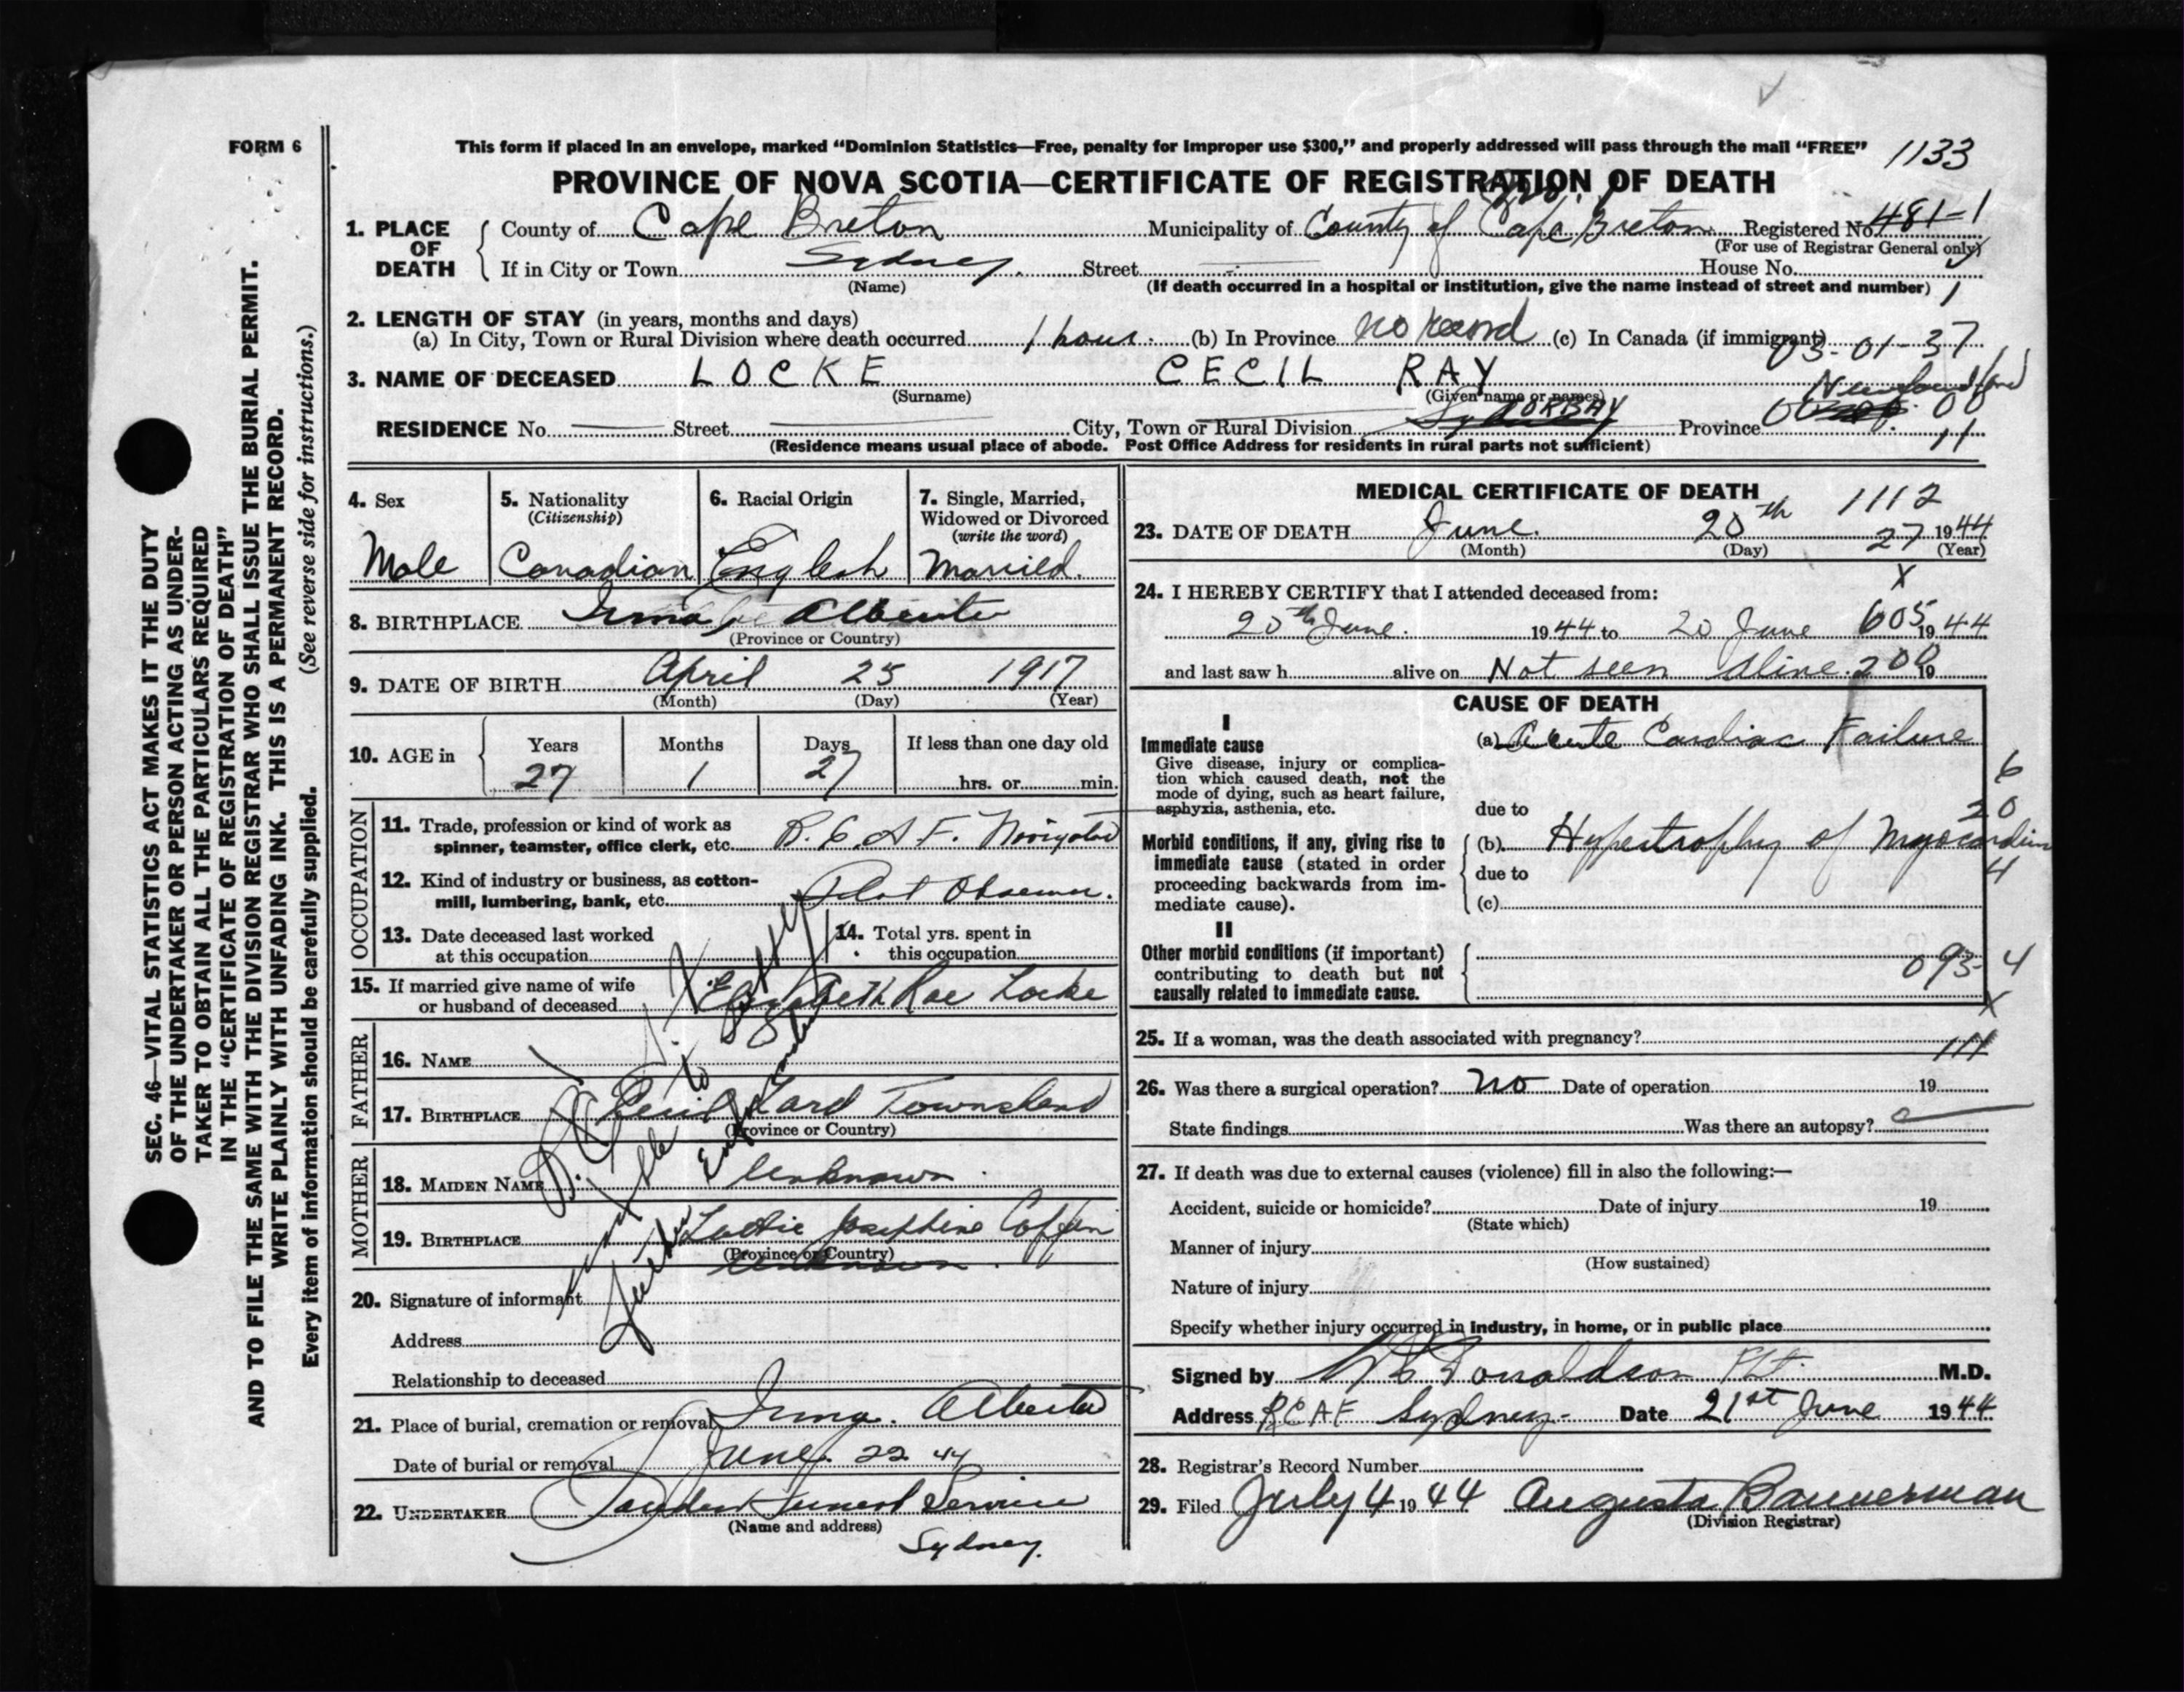 FORM 6
This form if placed in an envelope, marked "Dominion Statistics—Free, penalty for improper use $300," and properly addressed will pass through the mail "FREE"
1133
PROVINCE OF NOVA SCOTIA—CERTIFICATE OF REGISTRATION OF DEATH
1. PLACE OF DEATH
County of Cape Breton Municipality of County of Cape Breton Registered No. 481-1
(For use of Registrar General only)
If in City or Town Sydney. Street House No.
(Name) (If death occurred in a hospital or institution, give the name instead of street and number) 1
2. LENGTH OF STAY (in years, months and days)
(a) In City, Town or Rural Division where death occurred 1 hour. (b) In Province no record (c) In Canada (if immigrant)
03-01-37
3. NAME OF DECEASED LOCKE CECIL RAY
(Surname) (Given name or names)
Newfoundland
RESIDENCE No. Street City, Town or Rural Division TORBAY Province 00
(Residence means usual place of abode. Post Office Address for residents in rural parts not sufficient) 11
4. Sex
Male
5. Nationality
(Citizenship)
Canadian
6. Racial Origin
English
7. Single, Married, Widowed or Divorced
(write the word)
Married.
8. BIRTHPLACE Irma Alberta
(Province or Country)
9. DATE OF BIRTH April 25 1917
(Month) (Day) (Year)
10. AGE in
Years Months Days If less than one day old
27 1 27 hrs. or min.
OCCUPATION
11. Trade, profession or kind of work as
spinner, teamster, office clerk, etc. R.C.A.F. Navigator
12. Kind of industry or business, as cotton-
mill, lumbering, bank, etc. Pilot Observer.
13. Date deceased last worked
at this occupation
14. Total yrs. spent in
this occupation
15. If married give name of wife
or husband of deceased Elizabeth Rae Locke
FATHER
16. NAME
17. BIRTHPLACE Cecil Ward Townsland
(Province or Country)
MOTHER
18. MAIDEN NAME Unknown
19. BIRTHPLACE Lottie Josephine Coffin
(Province or Country)
Unknown.
20. Signature of informant
Address
Relationship to deceased
21. Place of burial, cremation or removal Irma. Alberta
Date of burial or removal June 22 44
22. UNDERTAKER Funeral Service
(Name and address)
Sydney.
MEDICAL CERTIFICATE OF DEATH
1112
23. DATE OF DEATH June. 20th 27 1944
(Month) (Day) (Year)
X
24. I HEREBY CERTIFY that I attended deceased from:
20th June. 1944 to 20 June 605 1944
and last saw h alive on Not seen Alive. 200 19
CAUSE OF DEATH
I
Immediate cause
Give disease, injury or complica-
tion which caused death, not the
mode of dying, such as heart failure,
asphyxia, asthenia, etc.
(a) Acute Cardiac Failure
6
due to
20
Morbid conditions, if any, giving rise to
immediate cause (stated in order
proceeding backwards from im-
mediate cause).
(b) Hypertrophy of Myocardium
due to 4
(c)
II
Other morbid conditions (if important)
contributing to death but not
causally related to immediate cause.
095-4
X
25. If a woman, was the death associated with pregnancy? 111
26. Was there a surgical operation? no Date of operation 19
State findings Was there an autopsy?
27. If death was due to external causes (violence) fill in also the following:—
Accident, suicide or homicide? Date of injury 19
(State which)
Manner of injury
(How sustained)
Nature of injury
Specify whether injury occurred in industry, in home, or in public place
Signed by Donaldson F/Lt. M.D.
Address RCAF Sydney- Date 21st June 1944
28. Registrar's Record Number
29. Filed July 4 1944 Augusta Bannerman
(Division Registrar)
SEC. 46—VITAL STATISTICS ACT MAKES IT THE DUTY
OF THE UNDERTAKER OR PERSON ACTING AS UNDER-
TAKER TO OBTAIN ALL THE PARTICULARS REQUIRED
IN THE "CERTIFICATE OF REGISTRATION OF DEATH"
AND TO FILE THE SAME WITH THE DIVISION REGISTRAR WHO SHALL ISSUE THE BURIAL PERMIT.
WRITE PLAINLY WITH UNFADING INK. THIS IS A PERMANENT RECORD.
Every item of information should be carefully supplied. (See reverse side for instructions.)